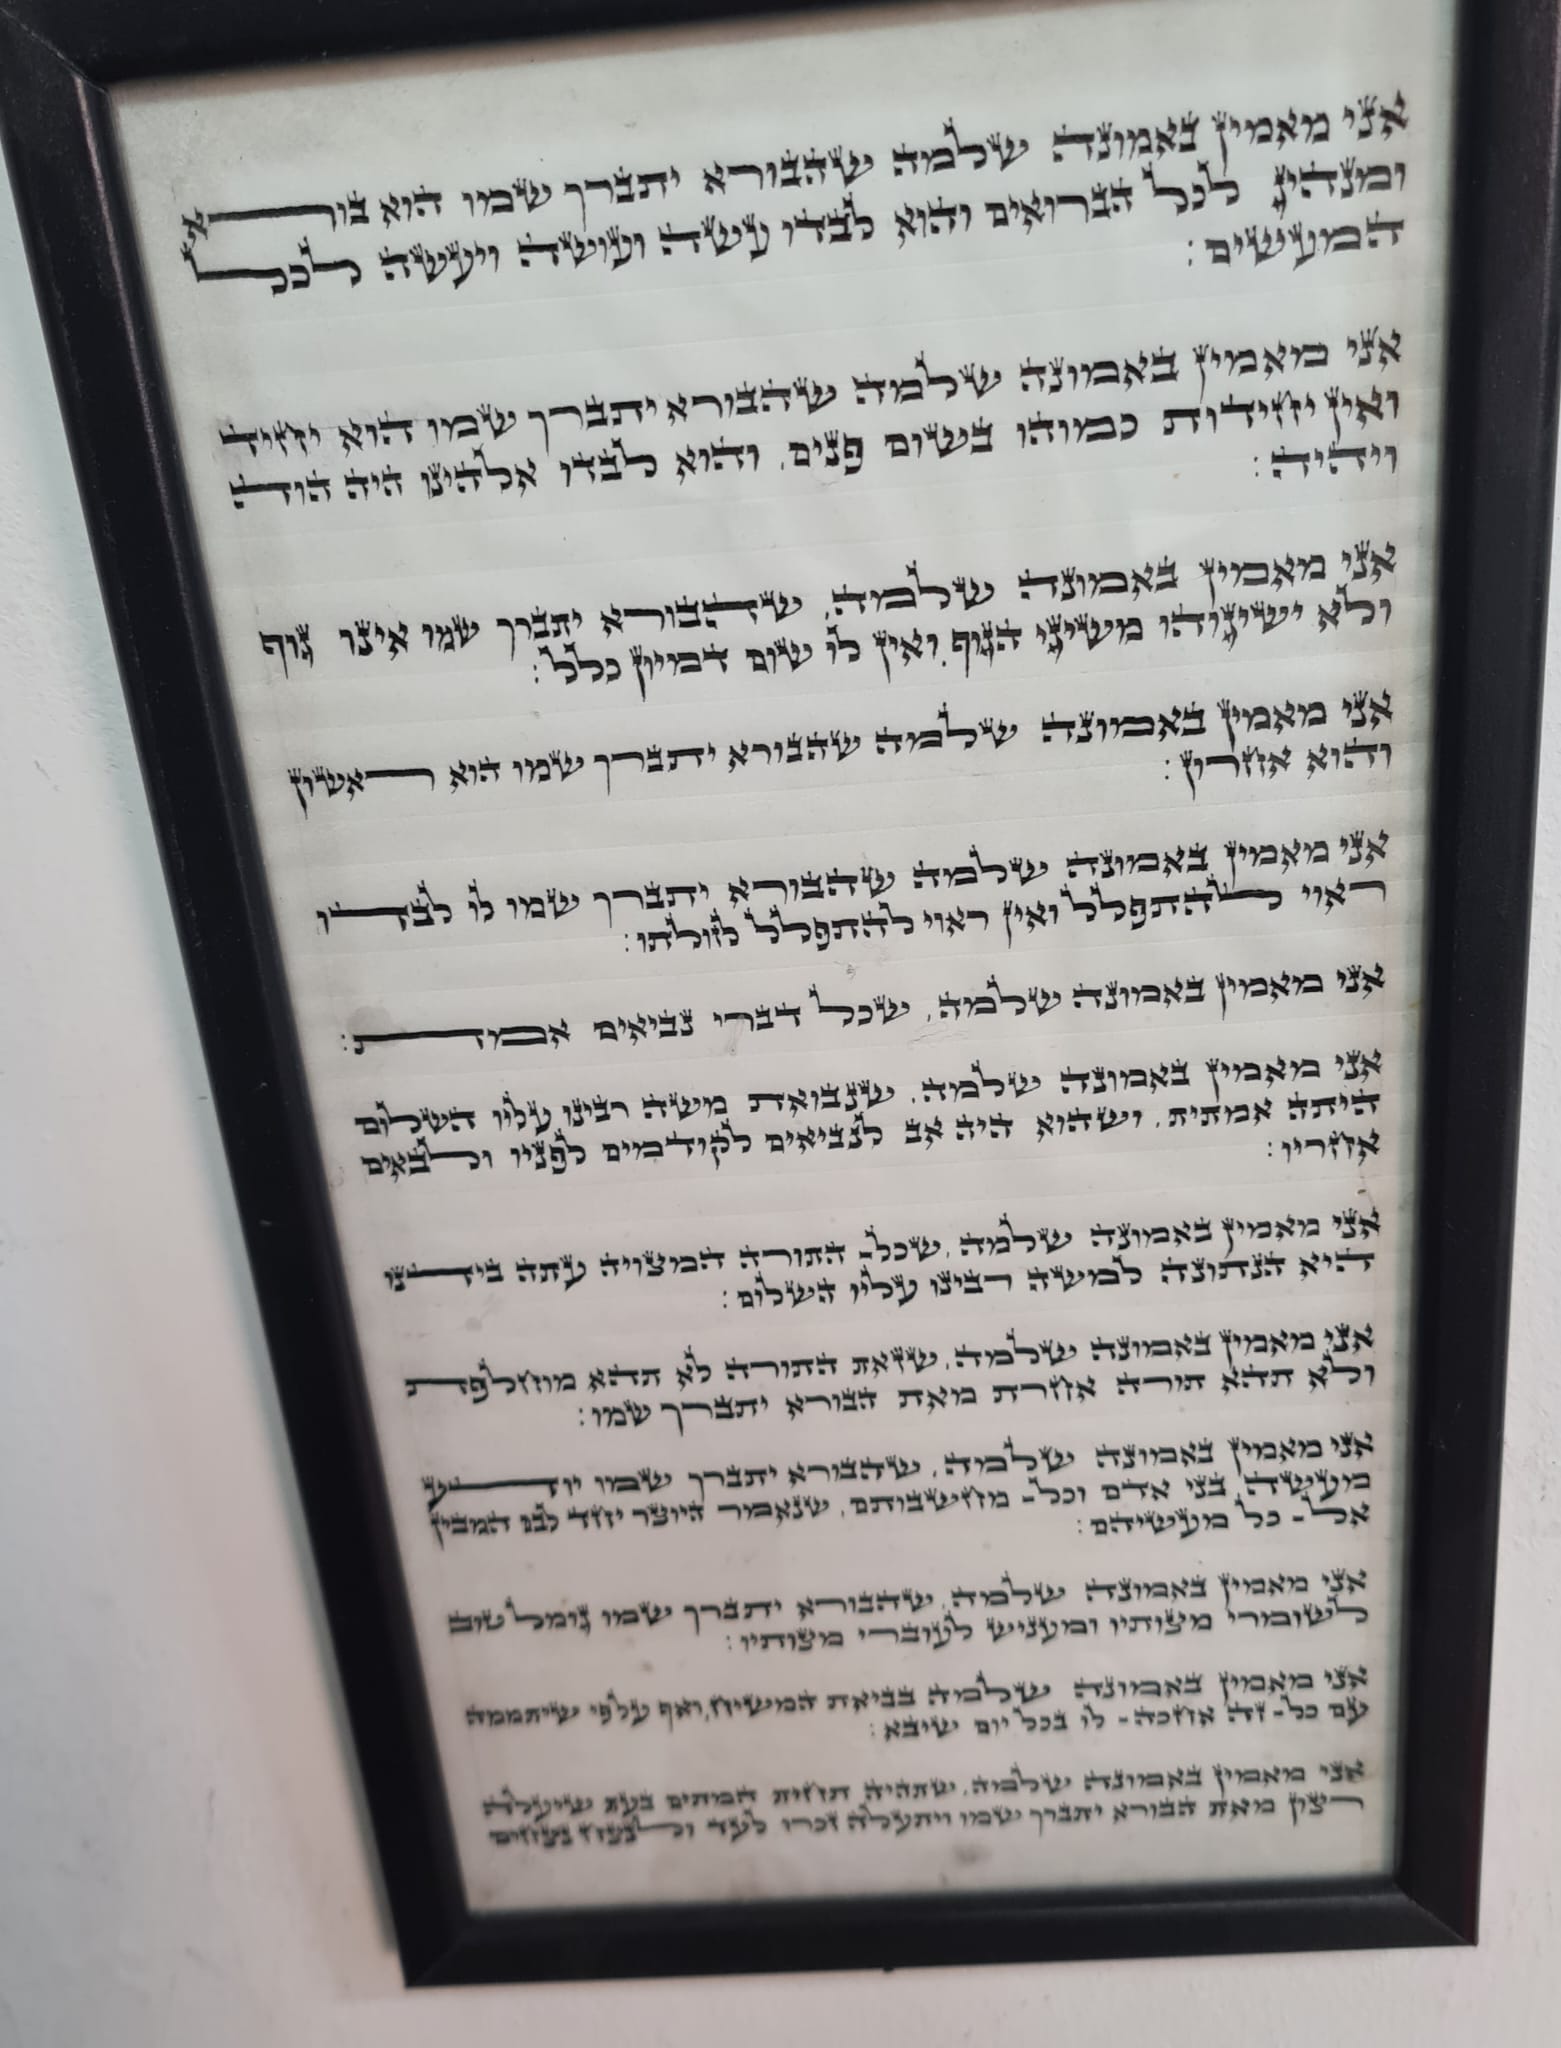 אני מאמין באמונה שלמה שהבורא יתברך שמו הוא בורא
ומנהיג לכל הברואים והוא לבדו עשה ועושה ויעשה לכל
המעשים:
אני מאמין באמונה שלמה שהבורא יתברך שמו הוא יחיד
ואין יחידות כמוהו בשום פנים, והוא לבדו אלהינו היה הוה
ויהיה:
אני מאמין באמונה שלמה, שהבורא יתברך שמו אינו גוף
ולא ישיגוהו משיגי הגוף, ואין לו שום דמיון כלל:
אני מאמין באמונה שלמה שהבורא יתברך שמו הוא ראשון
והוא אחרון:
אני מאמין באמונה שלמה שהבורא יתברך שמו לו לבדו
ראוי להתפלל ואין ראוי להתפלל לזולתו:
אני מאמין באמונה שלמה, שכל דברי נביאים אמת:
אני מאמין באמונה שלמה, שנבואת משה רבינו עליו השלום
היתה אמתית, ושהוא היה אב לנביאים לקודמים לפניו ולבאים
אחריו:
אני מאמין באמונה שלמה, שכל- התורה המצויה עתה בידנו
היא הנתונה למשה רבינו עליו השלום:
אני מאמין באמונה שלמה, שזאת התורה לא תהא מוחלפת
ולא תהא תורה אחרת מאת הבורא יתברך שמו:
אני מאמין באמונה שלמה, שהבורא יתברך שמו יודע
מעשה בני אדם וכל- מחשבותם, שנאמר היוצר יחד לבם המבין
אל- כל מעשיהם:
אני מאמין באמונה שלמה, שהבורא יתברך שמו גומל טוב
לשומרי מצותיו ומעניש לעוברי מצותיו:
אני מאמין באמונה שלמה בביאת המשיח, ואף על פי שיתמהמה
עם כל- זה אחכה- לו בכל יום שיבא:
אני מאמין באמונה שלמה, שתהיה תחית המתים בעת שיעלה
רצון מאת הבורא יתברך שמו ויתעלה זכרו לעד ולנצח נצחים